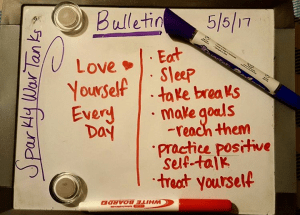 Bulletin
5/5/17
Sparkly War Tanks
Love ♥
Yourself
Every
DAY
· Eat
· Sleep
· take breaks
· make goals
-reach them
· practice positive
self-talk
· treat yourself
WHITE BOARD